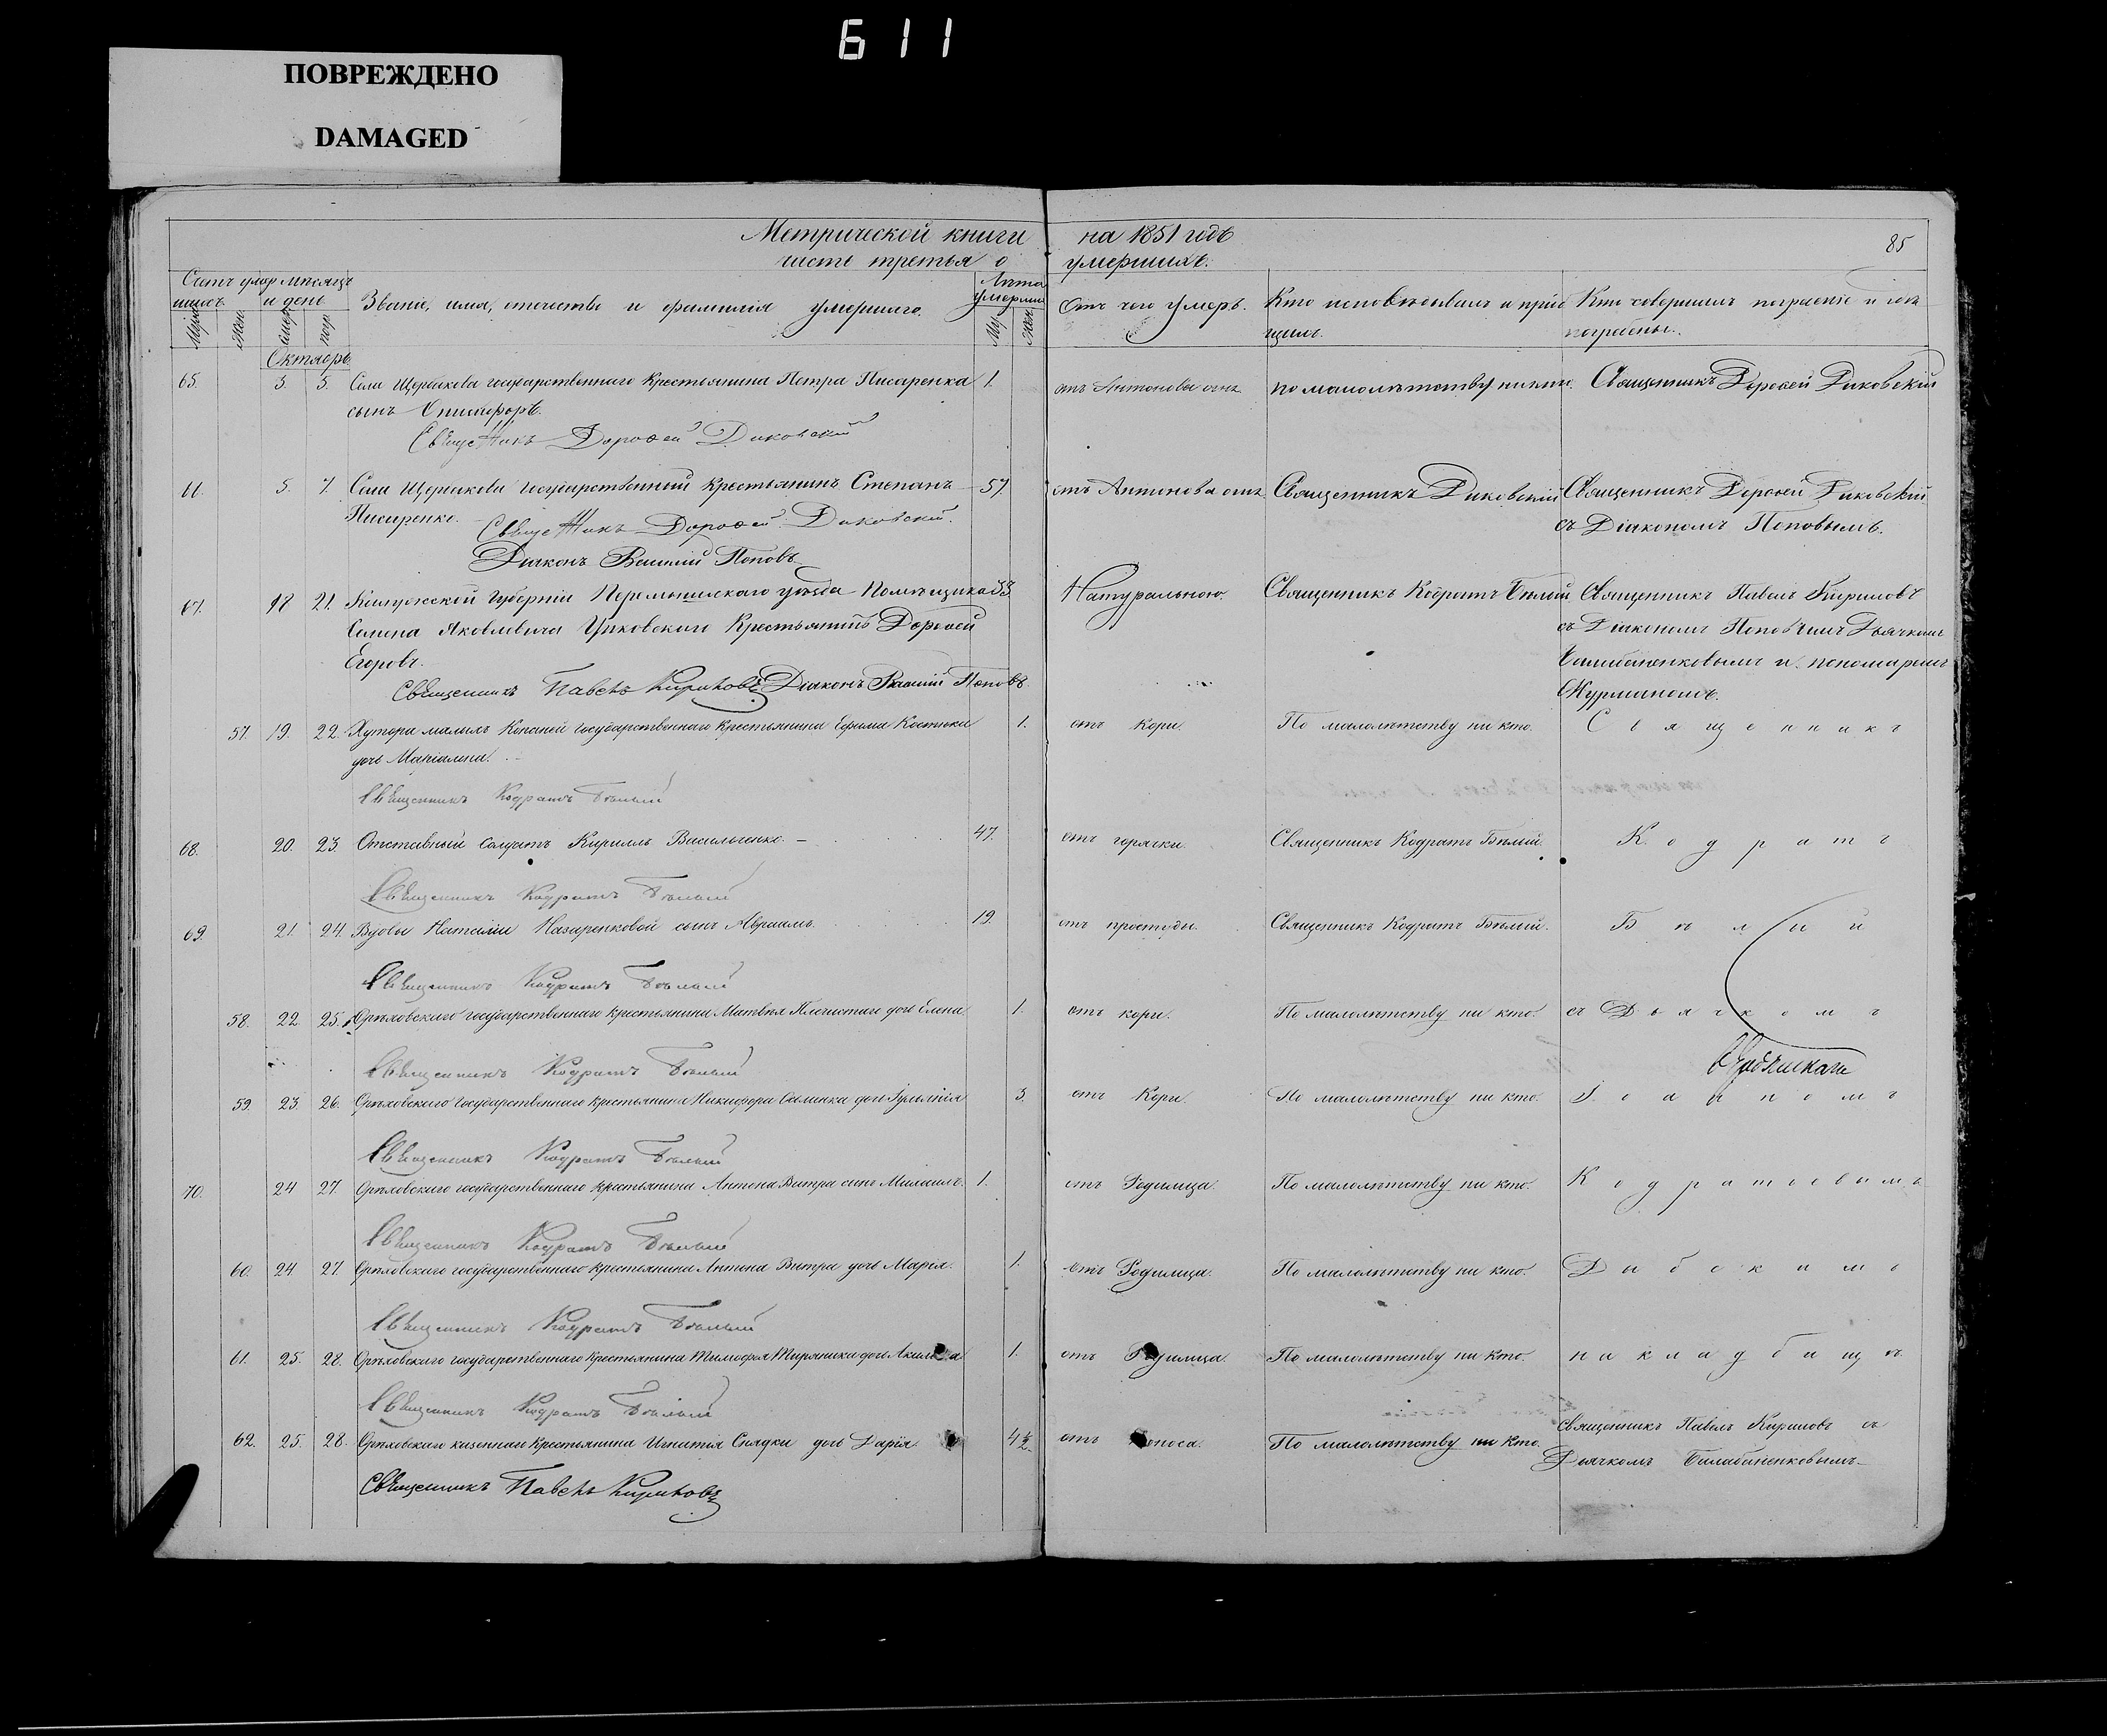 611
ПОВРЕЖДЕНО
DAMAGED
Метрической книги на 1851 годъ
85
часть третья о умершихъ.
Счетъ умершихъ
Муж.
Жен.
мѣсяцъ и день
Званіе, имя, отчество и фамилія умершаго.
Лѣта умершаго
Му.
Жен.
Отъ чего умеръ.
Кто исповѣдывалъ и пріобщилъ.
Кто совершилъ погребеніе и гдѣ погребены.
Октябрь
65. 3. 5. Села Щербакова государственнаго крестьянина Петра Писаренка 1. отъ Антонова огня по малолѣтству никто. Священникъ Дорофей Диковскій
сынъ Онисифоръ.
Священникъ Дорофей Диковскій
66. 5. 7. Села Щербакова государственный крестьянинъ Степанъ 57. отъ Антонова огня Священникъ Диковскій Священникъ Дорофей Диковскій
Писаренко.
съ Діакономъ Поповымъ.
Священникъ Дорофей Диковскій.
Діаконъ Василій Поповъ
67. 18 21. Калужской губерніи Перемышльскаго уѣзда Помѣщика 53 Натуральною. Священникъ Кодратъ Бѣлый Священникъ Павелъ Кириловъ
Семена Яковлевича Унковскаго Крестьянинъ Дорофей
съ Діакономъ Поповымъ Дьячкомъ
Егоровъ.
Балабаненковымъ и пономаремъ
Священникъ Павелъ Кириловъ Діаконъ Василій Поповъ.
Курмановъ.
57. 19. 22. Хутора малыхъ Копаней государственнаго крестьянина Ефима Костюка 1. отъ кори. По малолѣтству ни кто. Священникъ
дочь Маріамна.
Священникъ Кодратъ Бѣлый
68. 20. 23 Отставный солдатъ Кириллъ Васильченко. 47. отъ горячки. Священникъ Кодратъ Бѣлый. Кодратъ
Священникъ Кодратъ Бѣлый
69. 21. 24. Вдовы Наталіи Назаренковой сынъ Авраамъ. 19. отъ простуды. Священникъ Кодратъ Бѣлый. Бѣлый
Священникъ Кодратъ Бѣлый
58. 22 25. Орѣховскаго государственнаго крестьянина Матвѣя Плечистаго дочь Елена 1. отъ кори. По малолѣтству ни кто. съ Дьячкомъ
Священникъ Кодратъ Бѣлый
59. 23. 26. Орѣховскаго государственнаго крестьянина Никифора дочь Гульпія 3. отъ Кори. По малолѣтству ни кто. Іоанномъ
Священникъ Кодратъ Бѣлый
70. 24 27. Орѣховскаго государственнаго крестьянина Антона Витра сынъ Михаилъ. 1. отъ Родимца. По малолѣтству ни кто. Кодратоевымъ
Священникъ Кодратъ Бѣлый
60. 24 27. Орѣховскаго государственнаго крестьянина Антона Витра дочь Марія. 1. отъ Родимца. По малолѣтству ни кто.
Священникъ Кодратъ Бѣлый
61. 25. 28. Орѣховскаго государственнаго крестьянина Тимофея дочь 1. отъ Родимца. По малолѣтству ни кто. на кладбищѣ.
Священникъ Кодратъ Бѣлый
Священникъ Павелъ Кириловъ съ
62. 25. 28. Орѣховскаго казеннаго крестьянина Игнатія дочь Дарія. 4½ отъ поноса. По малолѣтству ни кто. Дьячкомъ Балабаненковымъ
Священникъ Павелъ Кириловъ